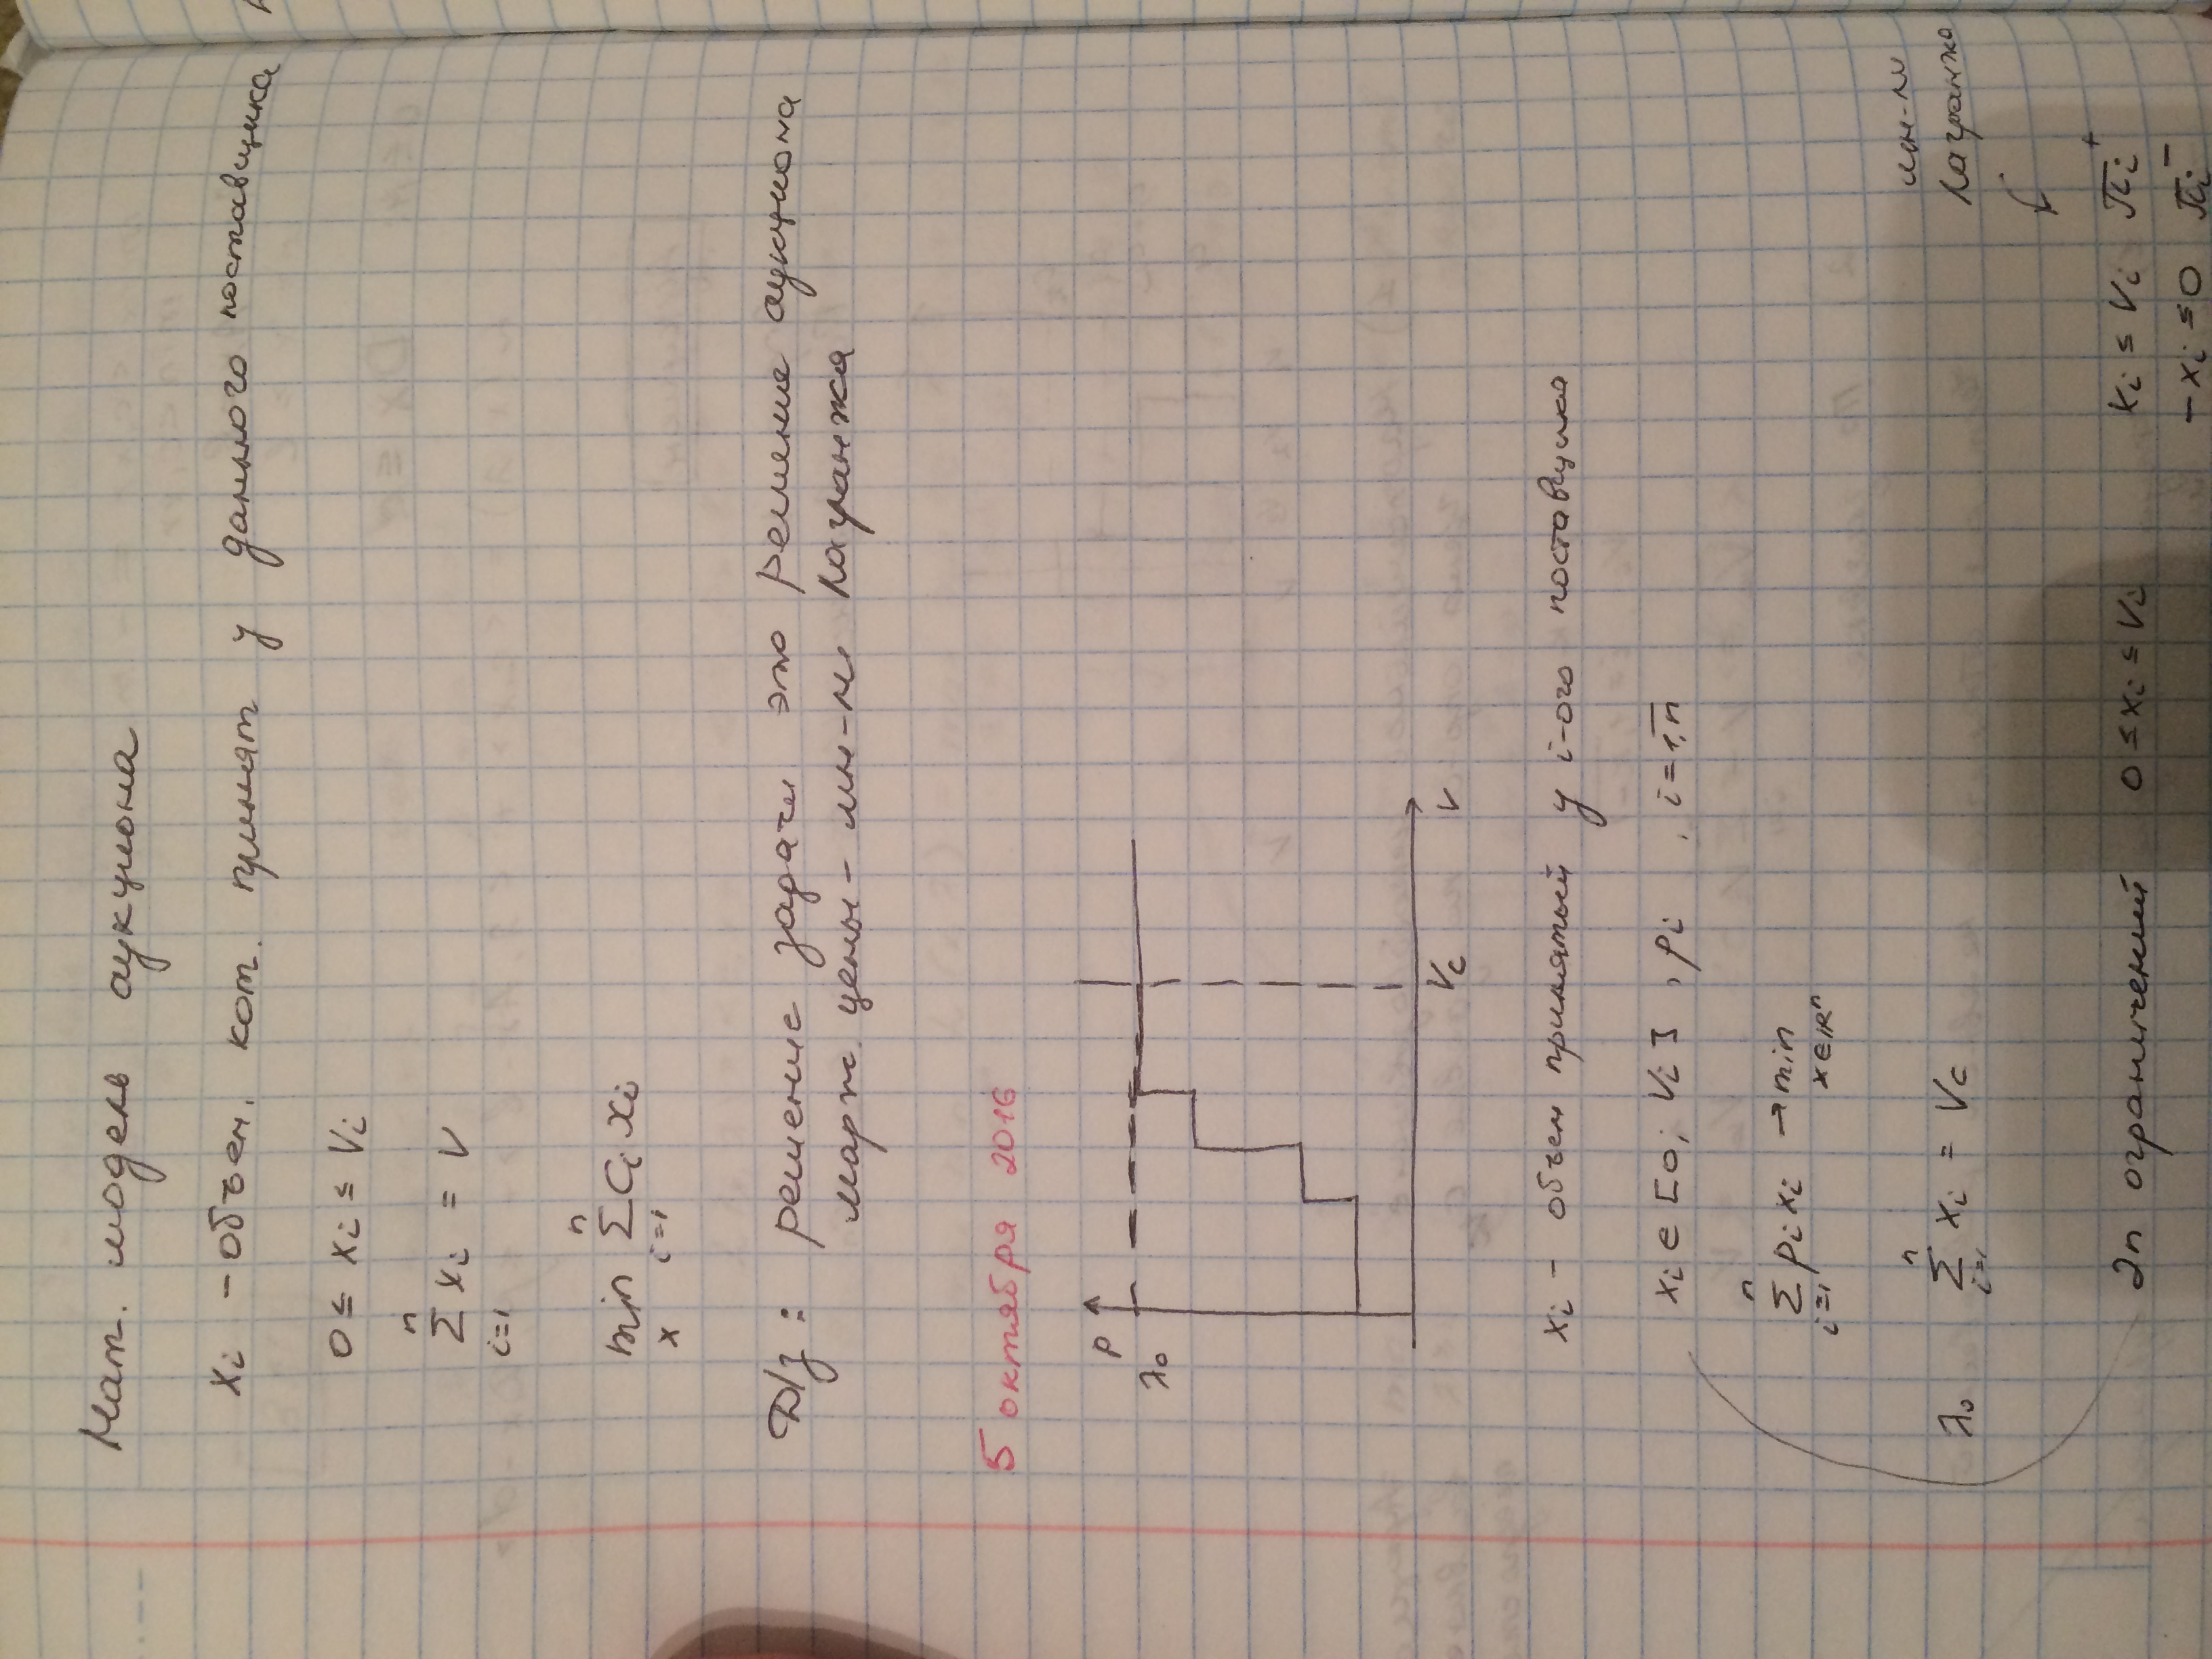 Мат. модель аукциона
xᵢ - объем, кот. примят у данного поставщика
0 ≤ xᵢ ≤ Vᵢ
n
∑ xᵢ = V
i=1
n
min ∑ Cᵢ xᵢ
x i=1
Д/з: решение задачи это решение аукциона
марж. цены - мн-ли Лагранжа
5 октября 2016
P
λ₀
Vc
V
xᵢ - объем принятый у i-ого поставщика
xᵢ ∈ [0; Vᵢ], pᵢ, i = 1,n
n
∑ pᵢ xᵢ → min
i=1 x∈ℝⁿ
мн-ли
Лагранжа
n
λ₀ ∑ xᵢ = Vc
i=1
2n ограничений 0 ≤ xᵢ ≤ Vᵢ xᵢ ≤ Vᵢ πᵢ⁺
- xᵢ ≤ 0 πᵢ⁻